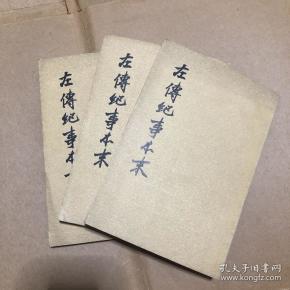 左傳紀事本末
左傳紀事本末
左傳紀事本
孔夫子旧书网
www.kongfz.com